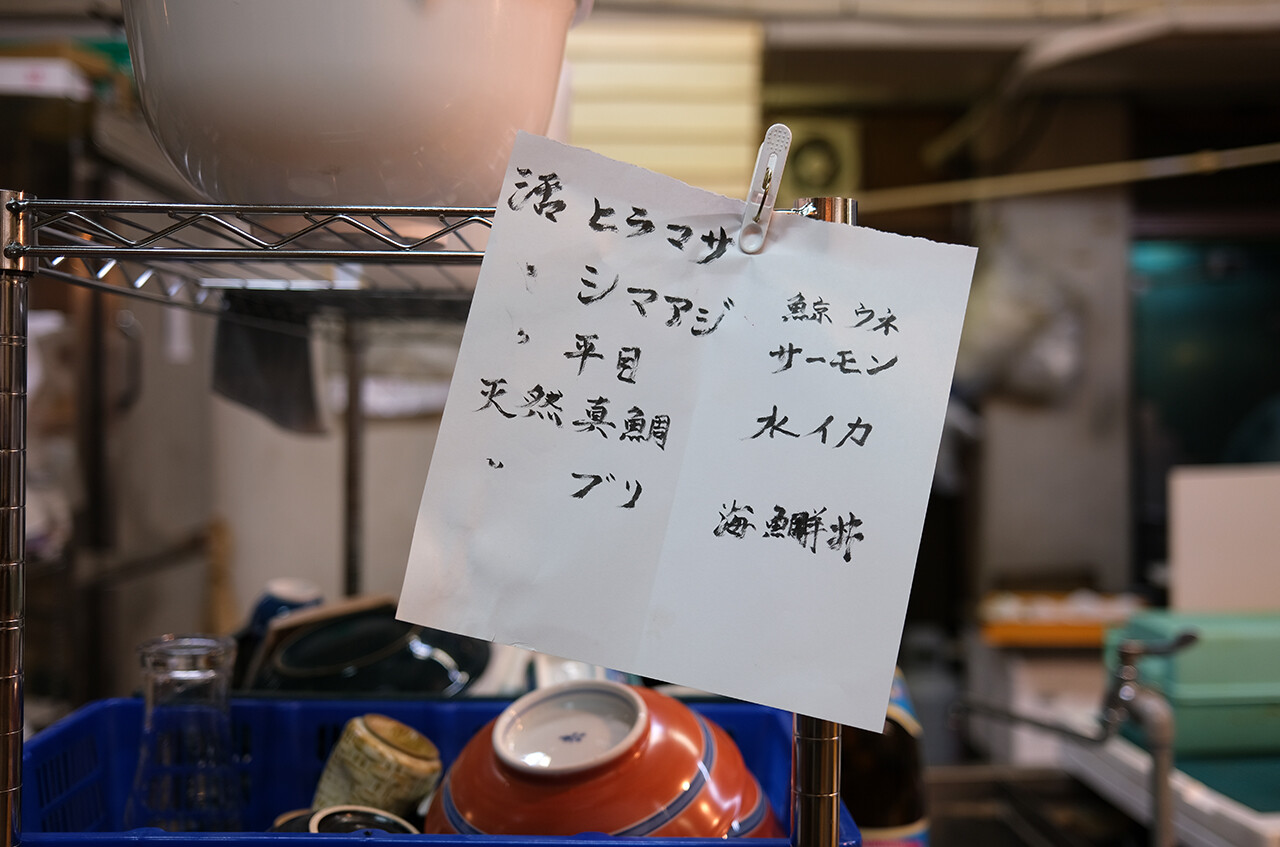 活 ヒラマサ
〃 シマアジ
〃 平目
天然 真鯛
〃 ブリ
鯨 ウネ
サーモン
水イカ
海鮮丼